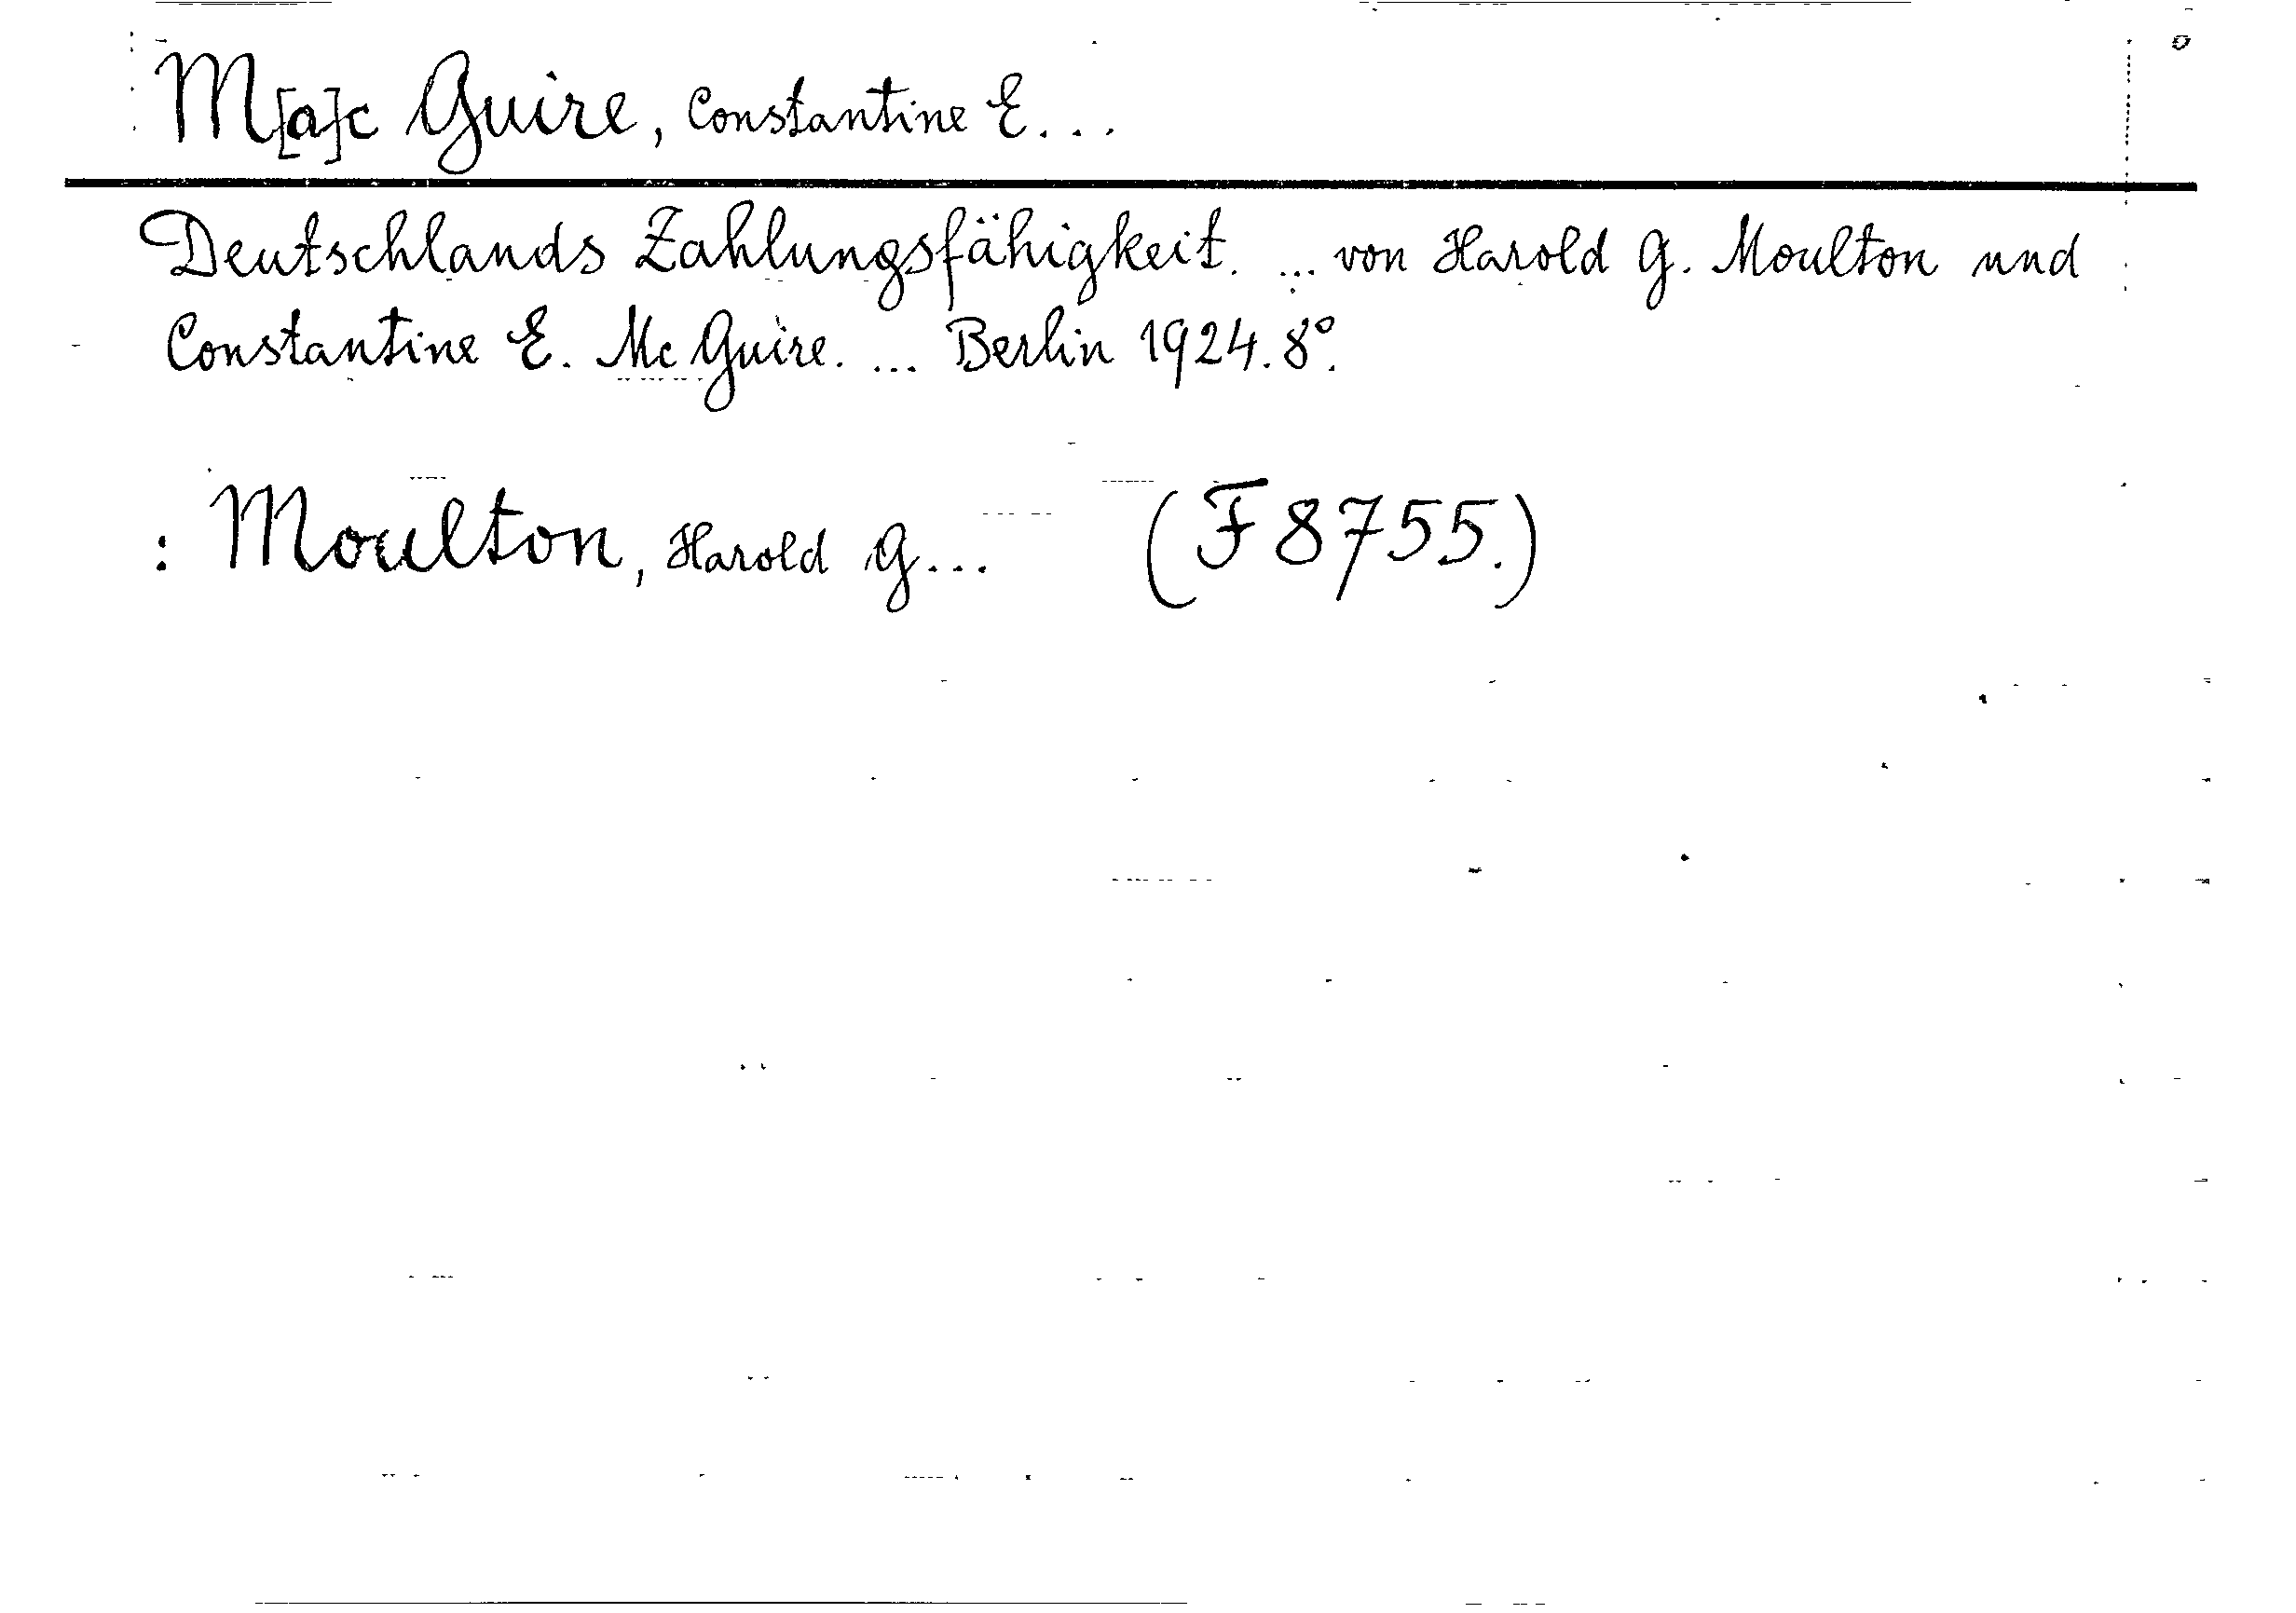 M[a]c Guire, Constantine E...
Deutschlands Zahlungsfähigkeit. ... von Harold G. Moulton und
Constantine E. Mc Guire. ... Berlin 1924. 8°.
: Moulton, Harold G... (F 8755.)